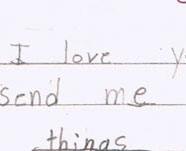 I love y
send me
things